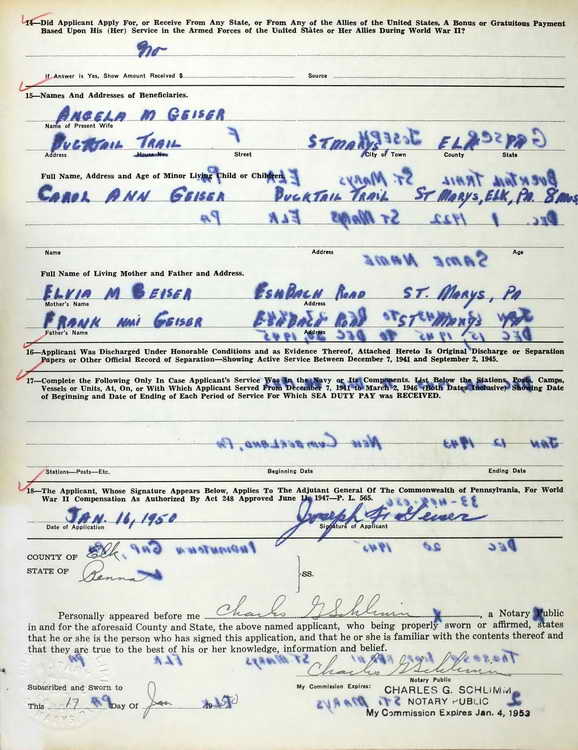 14—Did Applicant Apply For, or Receive From Any State, or From Any of the Allies of the United States, A Bonus or Gratuitous Payment
Based Upon His (Her) Service in the Armed Forces of the United States or Her Allies During World War II?
no
If Answer is Yes, Show Amount Received $ Source
15—Names And Addresses of Beneficiaries.
ANGELA M GEISER
Name of Present Wife
BUCKTAIL TRAIL ST MARYS, ELK PA
Address House No. Street City of Town County State
Full Name, Address and Age of Minor Living Child or Children.
CAROL ANN GEISER BUCKTAIL TRAIL ST MARYS, ELK, PA. 8 MOS
Name Address Age
Full Name of Living Mother and Father and Address.
ELVIA M GEISER ESHBACH ROAD ST. MARYS, PA
Mother's Name Address
FRANK NMI GEISER ESHBACH ROAD ST MARYS PA
Father's Name Address
16—Applicant Was Discharged Under Honorable Conditions and as Evidence Thereof, Attached Hereto Is Original Discharge or Separation
Papers or Other Official Record of Separation—Showing Active Service Between December 7, 1941 and September 2, 1945.
17—Complete the Following Only In Case Applicant's Service Was In the Navy or Its Components. List Below the Stations, Posts, Camps,
Vessels or Units, At, On, or With Which Applicant Served From December 7, 1941 to March 2, 1946 (Both Dates Inclusive) Showing Date
of Beginning and Date of Ending of Each Period of Service For Which SEA DUTY PAY was RECEIVED.
Stations—Posts—Etc. Beginning Date Ending Date
18—The Applicant, Whose Signature Appears Below, Applies To The Adjutant General Of The Commonwealth of Pennsylvania, For World
War II Compensation As Authorized By Act 248 Approved June 11, 1947—P. L. 565.
JAN. 16, 1950 Joseph F Geiser
Date of Application Signature of Applicant
COUNTY OF Elk,
STATE OF Penna
SS.
Personally appeared before me Charles G Schlimm, a Notary Public
in and for the aforesaid County and State, the above named applicant, who being properly sworn or affirmed, states
that he or she is the person who has signed this application, and that he or she is familiar with the contents thereof and
that they are true to the best of his or her knowledge, information and belief.
Charles G Schlimm
Notary Public
Subscribed and Sworn to My Commission Expires: CHARLES G. SCHLIMM
This 17 Day Of Jan 19 NOTARY PUBLIC
My Commission Expires Jan. 4, 1953